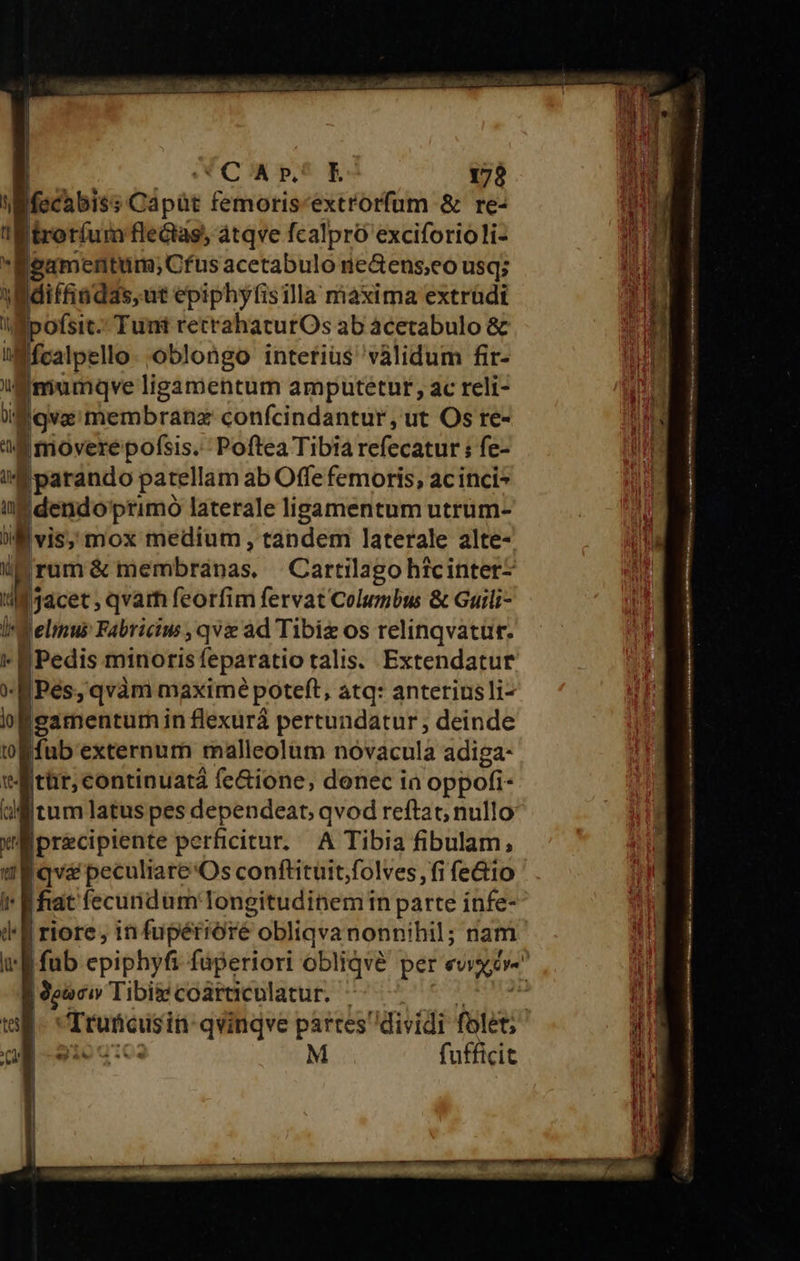 CAP. I. 178
fecabis; Capût femoris extrorſum & re-
trorſum flectas, atqve ſcalprô exciſorio li-
gamentum, Cſus acetabulo nectens, eo usq;
diffindas, ut epiphyſis illa maxima extrudi
poſsit. Tum retrahatur Os ab acetabulo &
ſcalpello oblongo interiùs vàlidum fir-
mumqve ligamentum amputetur, ac reli-
qvæ membranæ conſcindantur, ut Os re-
movere poſsis. Poſtea Tibia reſecatur; ſe-
parando patellam ab Oſſe femoris, ac inci-
dendo primò laterale ligamentum utrum-
vis, mox medium, tandem laterale alte-
rum & membranas. Cartilago hîc inter-
jacet, qvam ſeorſim ſervat Columbus & Guili-
elmus Fabricius, qvæ ad Tibiæ os relinqvatur.
Pedis minoris ſeparatio talis. Extendatur
Pes, qvàm maximè poteſt, atq: anterius li-
gamentum in flexurâ pertundatur, deinde
ſub externum malleolum novacula adiga-
tur, continuatâ ſectione, donec in oppoſi-
tum latus pes dependeat, qvod reſtat, nullo
præcipiente perficitur. A Tibia fibulam,
qvæ peculiare Os conſtituit, ſolves, ſi ſectio
fiat ſecundum longitudinem in parte infe-
riore, in ſuperiôre obliqva nonnihil; nam
ſub epiphyſi ſuperiori obliqvè per συγχόν-
δρωσιν Tibiæ coarticulatur.
Truncus in qvinqve partes dividi ſolet;
M ſufficit